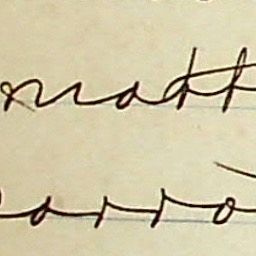 matt
arrò